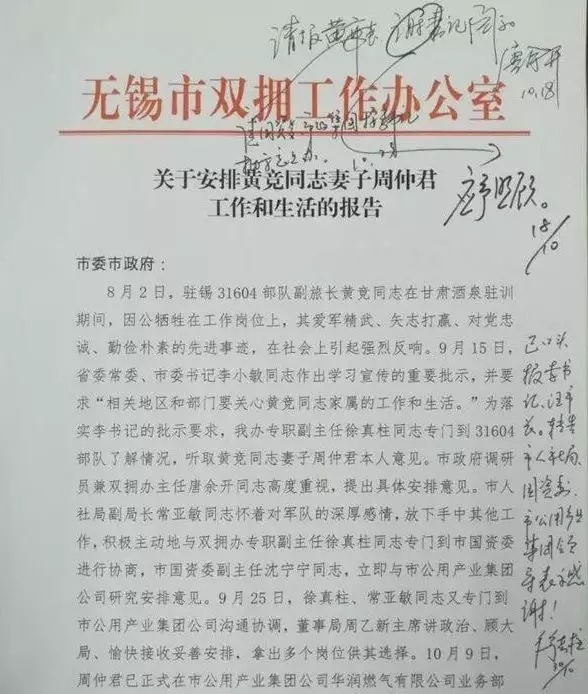 请报黄市长 谢书记阅示
10.18
无锡市双拥工作办公室
关于安排黄竞同志妻子周仲君
工作和生活的报告
18/10
市委市政府：
8月2日，驻锡31604部队副旅长黄竞同志在甘肃酒泉驻训
期间，因公牺牲在工作岗位上，其爱军精武、矢志打赢、对党忠
诚、勤俭朴素的先进事迹，在社会上引起强烈反响。9月15日，
省委常委、市委书记李小敏同志作出学习宣传的重要批示，并要
求“相关地区和部门要关心黄竞同志家属的工作和生活。”为落
实李书记的批示要求，我办专职副主任徐真柱同志专门到31604
部队了解情况，听取黄竞同志妻子周仲君本人意见。市政府调研
员兼双拥办主任唐余开同志高度重视，提出具体安排意见。市人
社局副局长常亚敏同志怀着对军队的深厚感情，放下手中其他工
作，积极主动地与双拥办专职副主任徐真柱同志专门到市国资委
进行协商，市国资委副主任沈宁宁同志，立即与市公用产业集团
公司研究安排意见。9月25日，徐真柱、常亚敏同志又专门到
市公用产业集团公司沟通协调，董事局周乙新主席讲政治、顾大
局、愉快接收妥善安排，拿出多个岗位供其选择。10月9日，
周仲君已正式在市公用产业集团公司华润燃气有限公司业务部
已口头
报李书
记、汪市
长。转告
市人社局
国资委、
市公用产业
集团领
导表示感
谢！